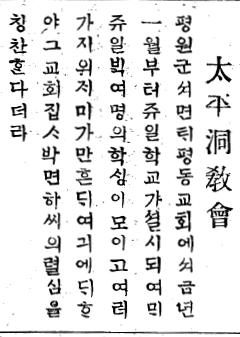 太平洞敎會
평원군셔면ᄐᆡ평동교회에셔금년
一월부터쥬일학교가셜시되여ᄆᆡ
쥬일ᄇᆡᆨ여명의학ᄉᆡᆼ이모이고여러
가지위저미가만흔ᄃᆡ여긔에ᄃᆡᄒᆞ
야그교회집ᄉᆞ박면하씨의렬심을
칭찬ᄒᆞᆫ다더라